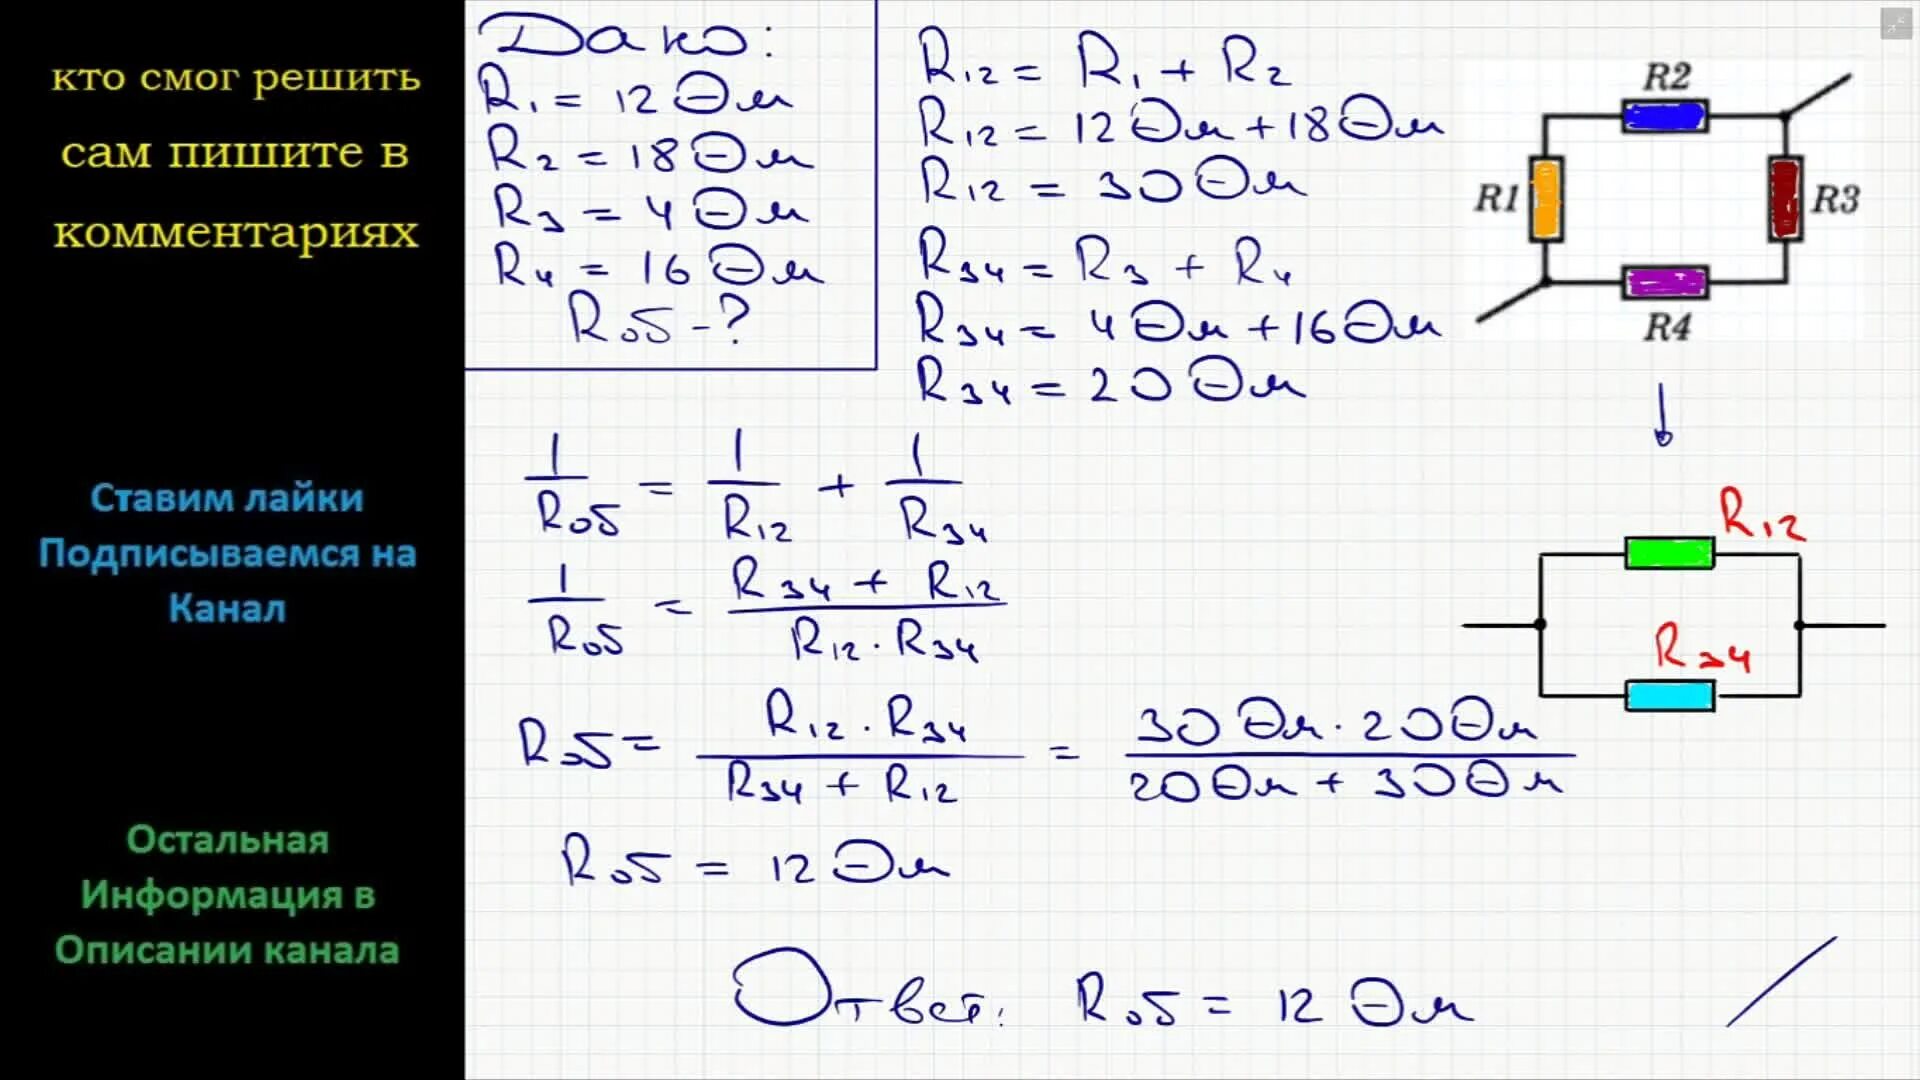 кто смог решить
сам пишите в
комментариях
Ставим лайки
Подписываемся на
Канал
Остальная
Информация в
Описании канала
Дано:
R₁ = 12 Ом
R₂ = 18 Ом
R₃ = 4 Ом
R₄ = 16 Ом
Rоб - ?
R₁₂ = R₁ + R₂
R₁₂ = 12 Ом + 18 Ом
R₁₂ = 30 Ом
R₃₄ = R₃ + R₄
R₃₄ = 4 Ом + 16 Ом
R₃₄ = 20 Ом
R2
R1
R3
R4
1/Rоб = 1/R₁₂ + 1/R₃₄
1/Rоб = (R₃₄ + R₁₂)/(R₁₂ · R₃₄)
Rоб = (R₁₂ · R₃₄)/(R₃₄ + R₁₂) = (30 Ом · 20 Ом)/(20 Ом + 30 Ом)
Rоб = 12 Ом
R₁₂
R₃₄
Ответ: Rоб = 12 Ом